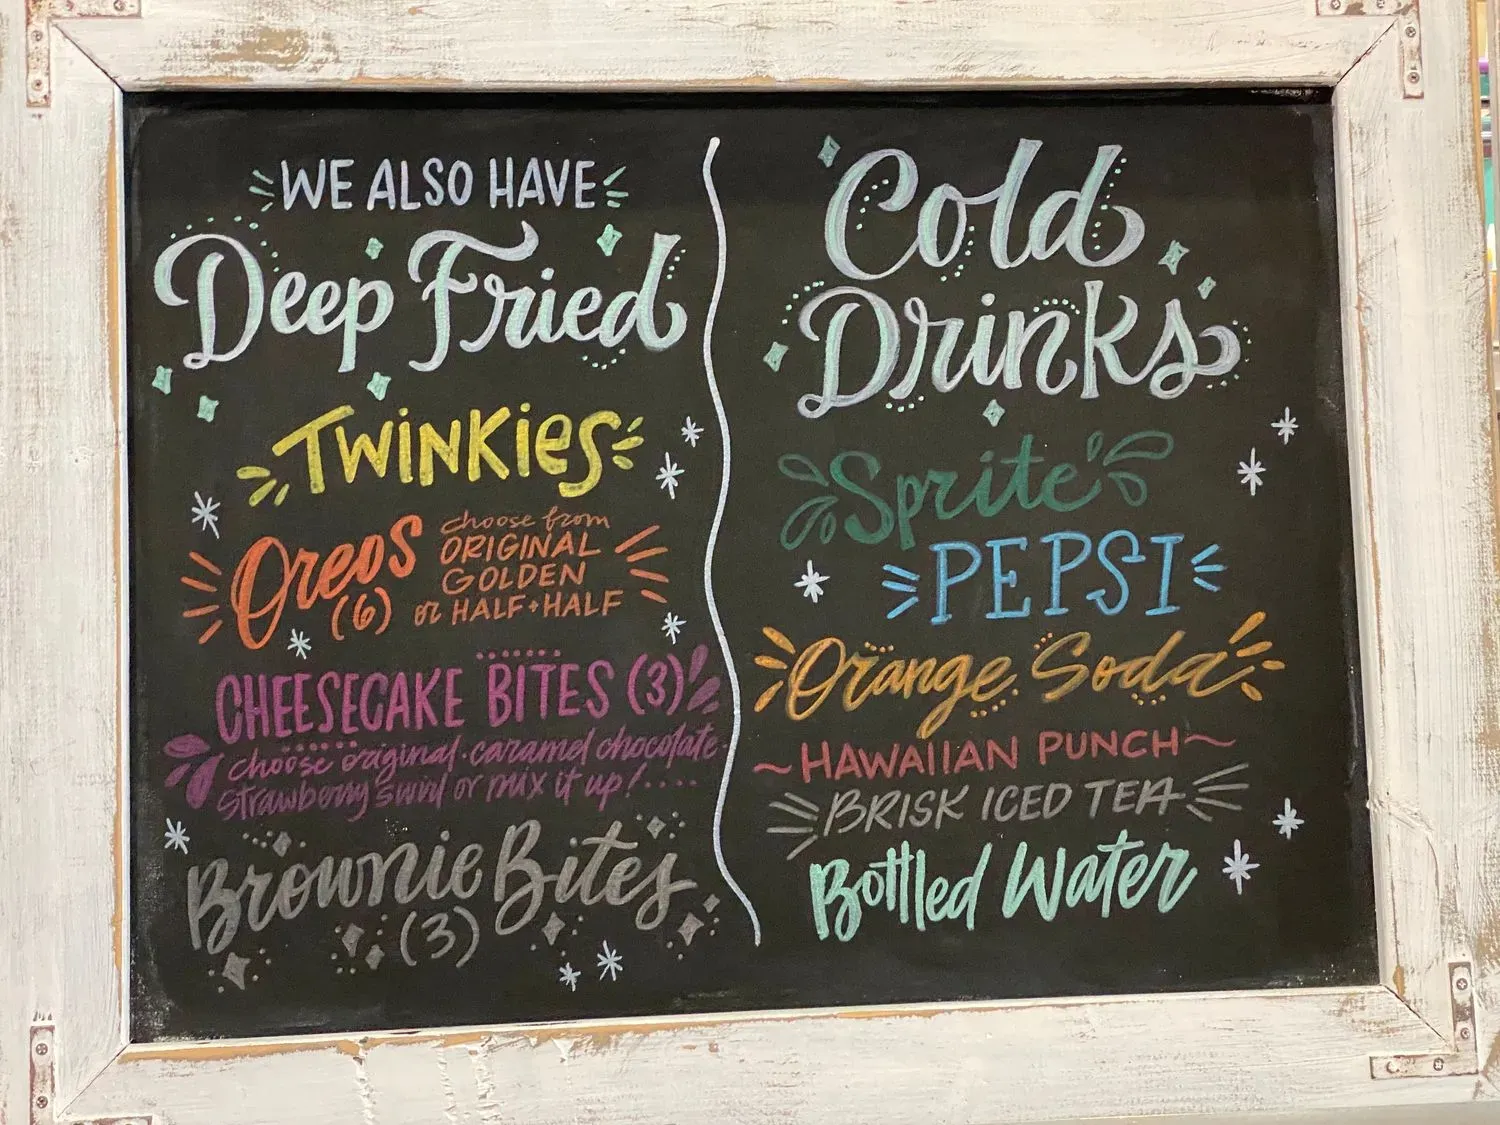 WE ALSO HAVE
Deep Fried
TWiNKieS
Oreos (6)
choose from
ORIGINAL
GOLDEN
or HALF+HALF
CHEESECAKE BITES (3)
choose original·caramel chocolate·
strawberry swirl or mix it up!....
Brownie Bites
(3)
Cold
Drinks
Sprite
PEPSI
Orange Soda
~HAWAIIAN PUNCH~
BRISK ICED TEA
Bottled Water